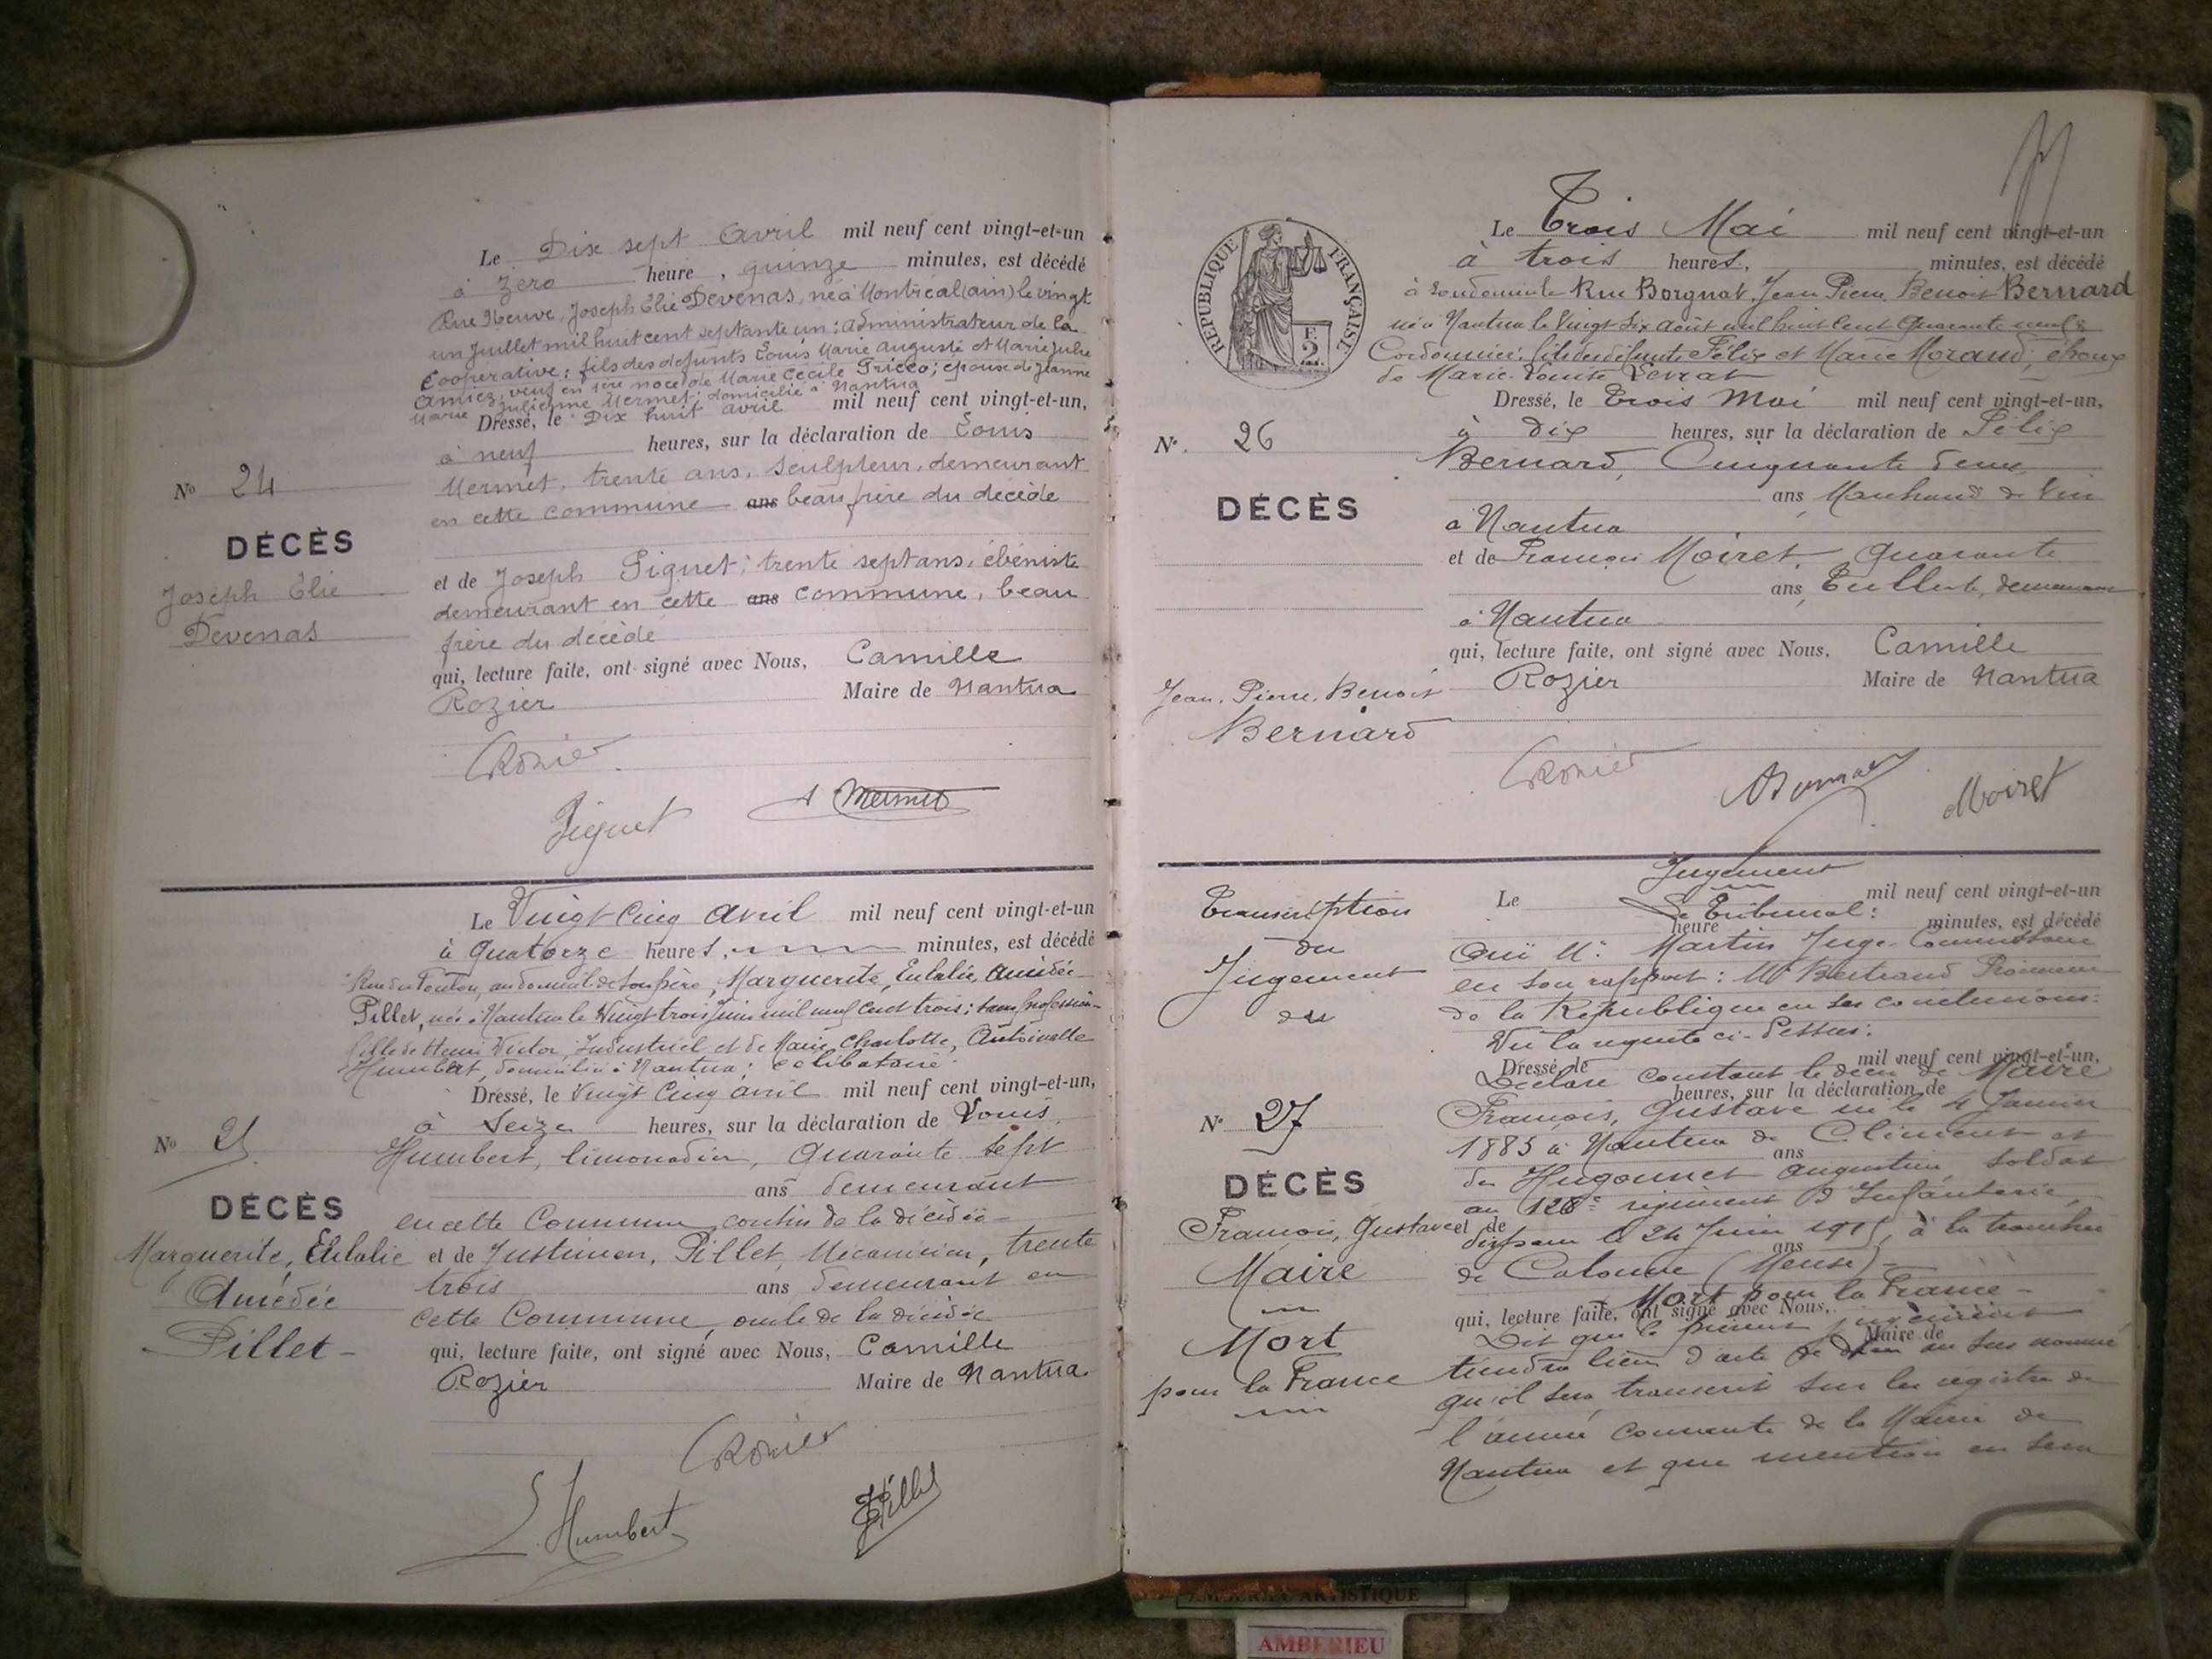 Le Dix sept Avril mil neuf cent vingt-et-un
à zéro heure, quinze minutes, est décédé
Rue Neuve, Joseph Elie Devenas, né à Montréal (ain) le vingt
un Juillet mil huit cent septante un : administrateur de la
Coopérative ; fils des defunts Louis Marie Auguste et Marie Julie
Amiez ; veuf en 1ère noce de Marie Cécile ; épouse de Jeanne
Marie Julienne Mermet ; domicilié à Nantua
Dressé, le Dix huit avril mil neuf cent vingt-et-un,
à neuf heures, sur la déclaration de Louis
Mermet, trente ans, Sculpteur, demeurant
en cette commune ans beau frère du décédé
et de Joseph Piguet ; trente sept ans, ébéniste
demeurant en cette ans commune, beau
frère du décédé
qui, lecture faite, ont signé avec Nous, Camille
Rozier Maire de Nantua
No 24
DÉCÈS
Joseph Elie
Devenas
CRozier
Piguet Mermet
Le Vingt Cinq Avril mil neuf cent vingt-et-un
à Quatorze heures, minutes, est décédé
au domicile de son père, Marguerite, Eulalie, Amédée
Pillet, née à Nantua le Vingt trois Juin mil neuf cent trois ; sans profession
fille de Henri Victor, Industriel et de Marie, Charlotte, Antoinette
Humbert, domiciliée à Nantua ; célibataire
Dressé, le Vingt Cinq Avril mil neuf cent vingt-et-un,
à Seize heures, sur la déclaration de Louis,
Humbert, limonadier, Quarante sept
ans demeurant
en cette Commune, cousin de la décédée
et de Justinien, Pillet, Mécanicien, trente
trois ans demeurant en
cette Commune, oncle de la décédée
qui, lecture faite, ont signé avec Nous, Camille
Rozier Maire de Nantua
No 25
DÉCÈS
Marguerite, Eulalie
Amédée
Pillet
CRozier
L Humbert Pillet
RÉPUBLIQUE FRANÇAISE
Le Trois Mai mil neuf cent vingt-et-un
à trois heures, minutes, est décédé
à son domicile Rue Borgnat, Jean Pierre Benoit Bernard
né à Nantua le Vingt Six Août mil huit cent Quarante neuf ;
Cordonnier ; fils des défunts Félix et Marie Morand, époux
de Marie Louise
Dressé, le Trois Mai mil neuf cent vingt-et-un,
à dix heures, sur la déclaration de Félix
Bernard, Cinquante deux
ans, Marchand de Vin
à Nantua
et de François Moiret, Quarante
ans, demeurant
à Nantua
qui, lecture faite, ont signé avec Nous, Camille
Rozier Maire de Nantua
No. 26
DÉCÈS
Jean, Pierre, Benoit
Bernard
CRozier Bernard Moiret
Transcription
du
Jugement
de
No 27
DÉCÈS
François, Gustave
Maire
Mort
pour la France
Jugement
Le mil neuf cent vingt-et-un
Le Tribunal :
heure minutes, est décédé
Ouï Mr Martin Juge Commissaire
en son rapport : Mr Bertrand Procureur
de la République en ses conclusions :
Vu la requête ci-dessus :
Dressé, le mil neuf cent vingt-et-un,
Déclare constant le décès de Maire
heures, sur la déclaration de
François, Gustave né le 4 Janvier
1885 à Nantua de Clément et
ans
de Hugonnet Augustine, soldat
au 128e régiment d'Infanterie,
et de
disparu le 24 Juin 1915, à la tranchée
ans
de Calonne (Meuse)
Mort pour la France
qui, lecture faite, ont signé avec Nous,
Dit que le présent jugement
Maire de
tiendra lieu d'acte de décès au sus nommé
qu'il sera transcrit sur les registres de
l'année courante de la Mairie de
Nantua et que mention en sera
AMBERIEU ARTISTIQUE
AMBERIEU